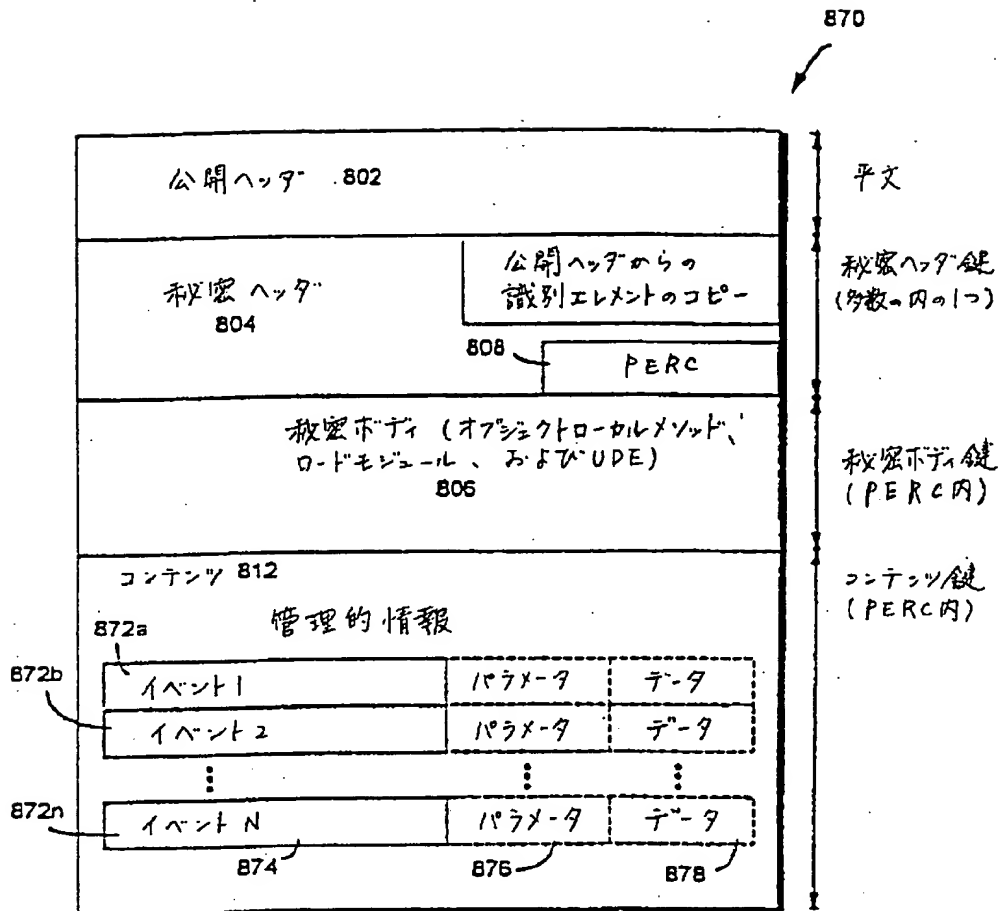 870
公開ヘッダ 802
平文
秘密ヘッダ
804
公開ヘッダからの
識別エレメントのコピー
808
PERC
秘密ヘッダ鍵
(多数の内の1つ)
秘密ボディ (オブジェクトローカルメソッド、
ロードモジュール、およびUDE)
806
秘密ボディ鍵
(PERC内)
コンテンツ 812
管理的情報
コンテンツ鍵
(PERC内)
872a
872b
イベント1 パラメータ データ
イベント2 パラメータ データ
872n
イベント N パラメータ データ
874
876
878